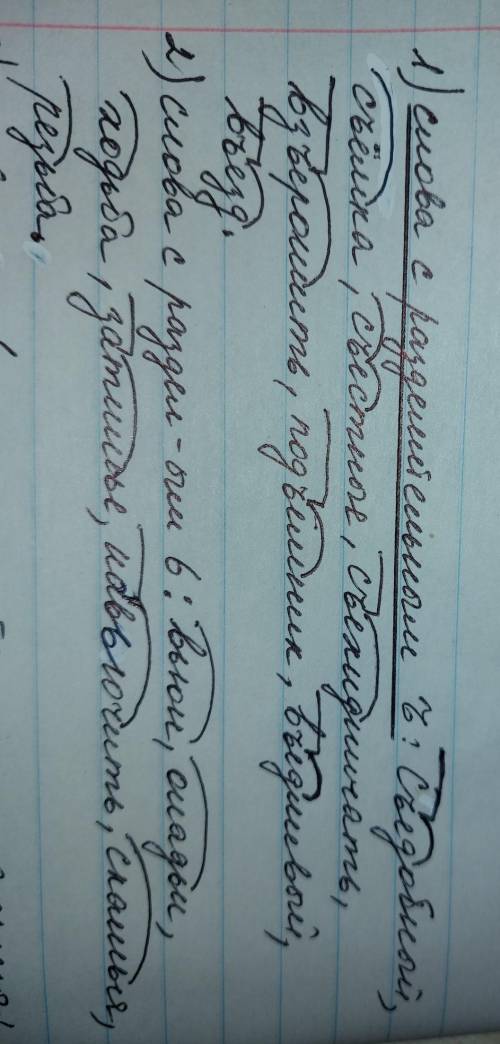 1) слова с разделительным ъ: Съедобный,
съёмка, съестное, съехидничать,
взъерошить, подъёмник, въедливый,
въезд.
2) слова с раздел-ым ь: вьюн, оладьи,
ходьба, затишье, навьючить, скамья,
резьба,